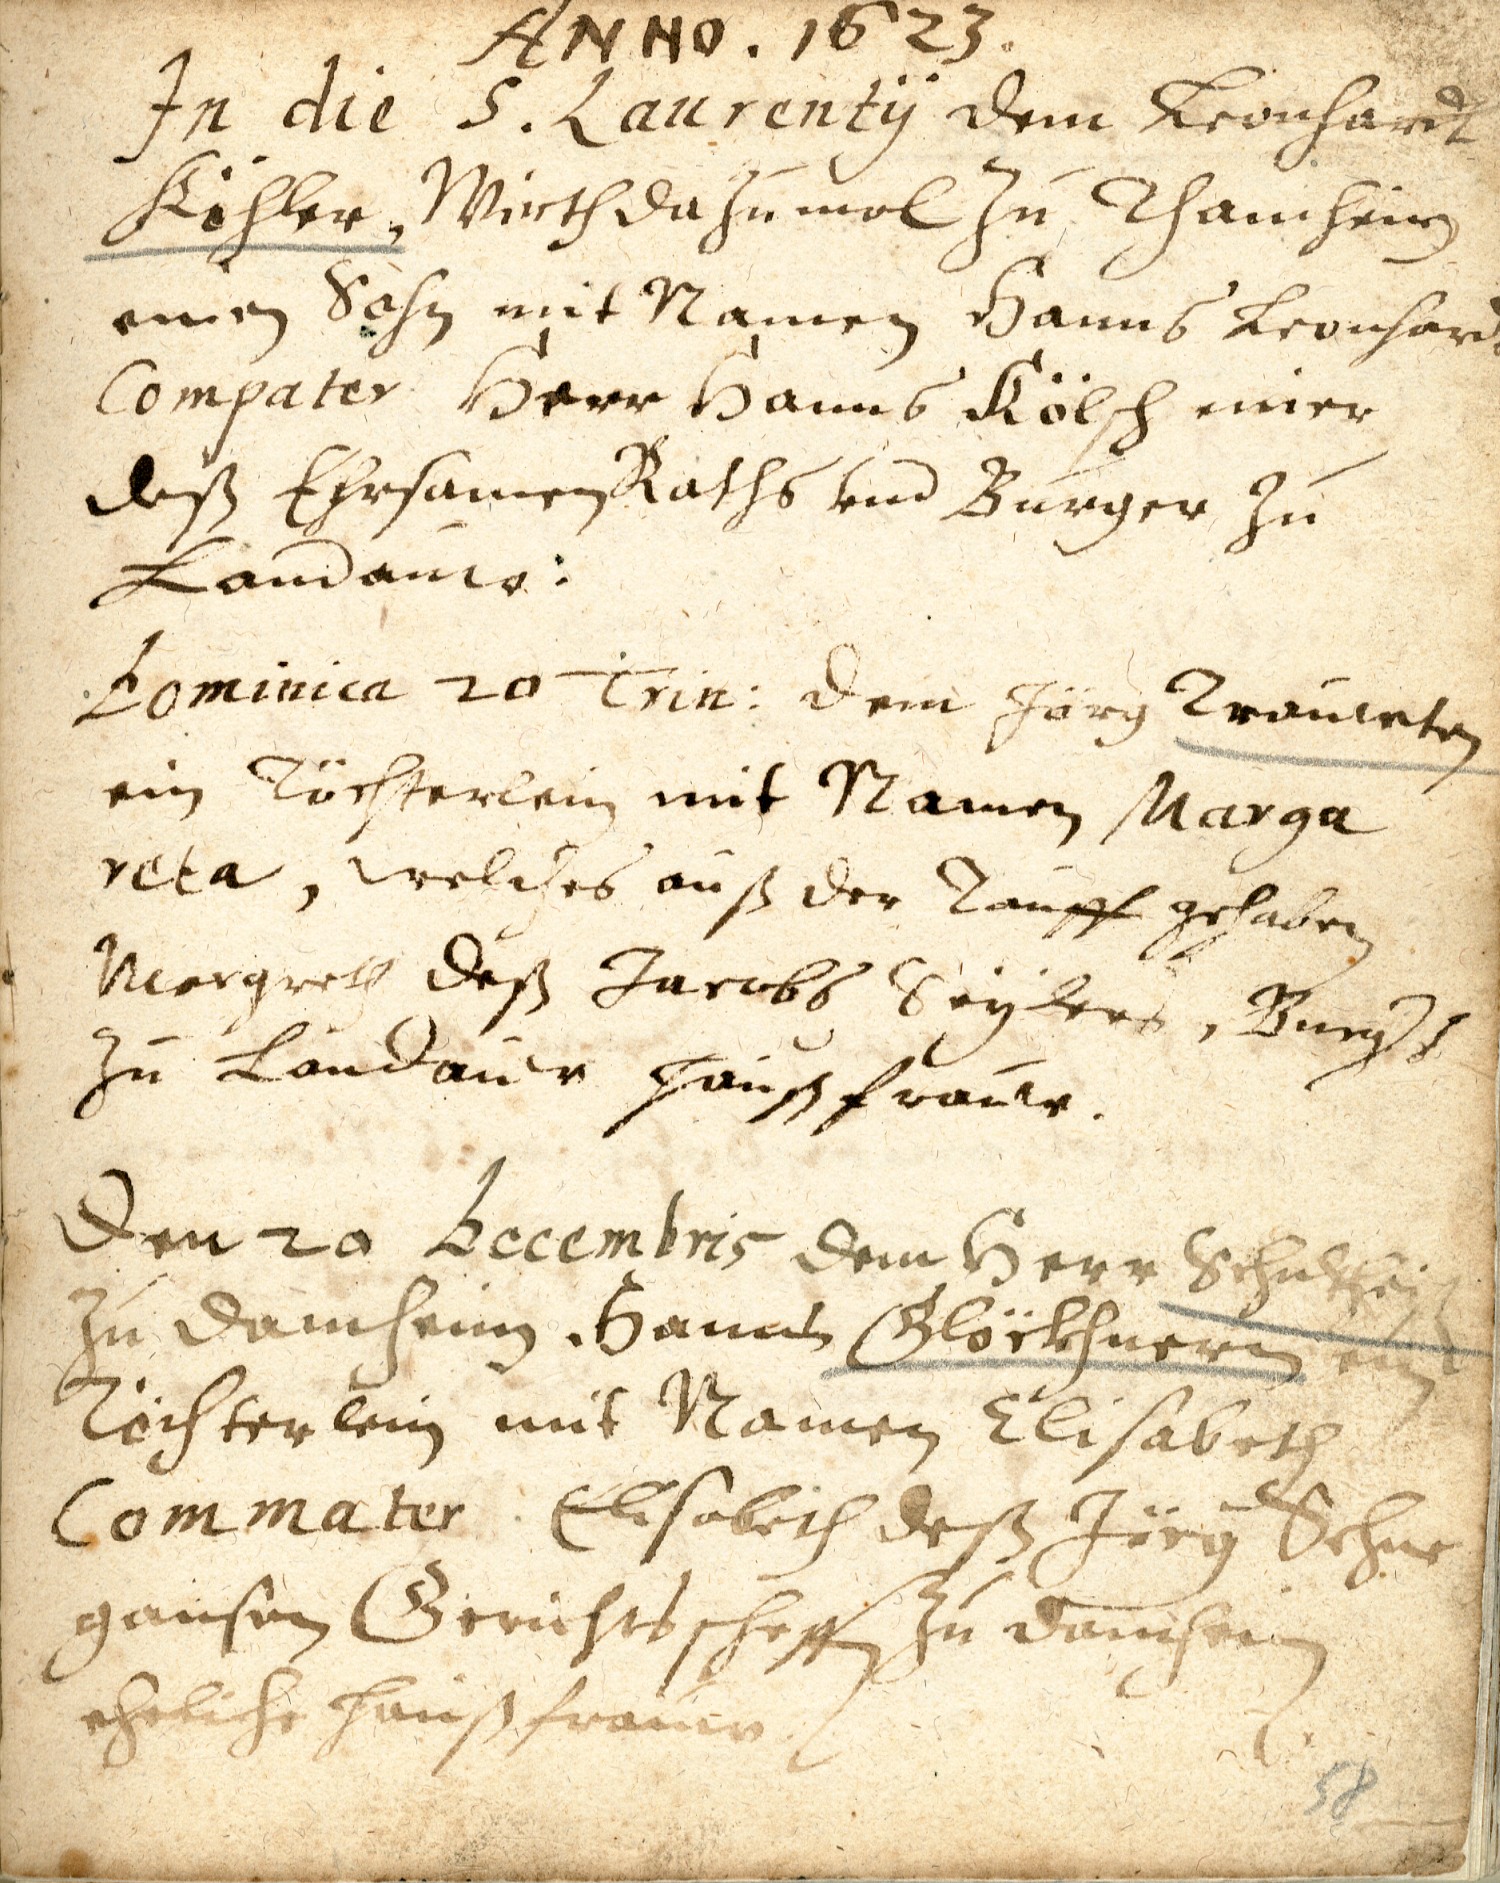 ANNO. 1623.
In die S. Laurentÿ dem Leonhardt
Köhler, Wirth dazumol zu Thamheim
einen Sohn mit Namen Hanns Leonhard
Compater Herr Hanns Kölsch einer
deß Ehrsamen Raths vnd Burger zu
Landauw:
Dominica 20 Trin: dem Jörg Trauwten
ein Töchterlein mit Namen Marga
reta, welches auß der Tauff gehaben
Margreth deß Jacobs Seÿlers, Burgers
zu Landauw haußfrauw.
Den 20 Decembris dem Herr Schultheiß
zu Damheim Hanns Glöckhnern ein
Töchterlein mit Namen Elisabeth
Commater Elisabeth deß Jörg Schne
gansen Gerichtsscheffen zu Damheim
eheliche haußfrauw
58